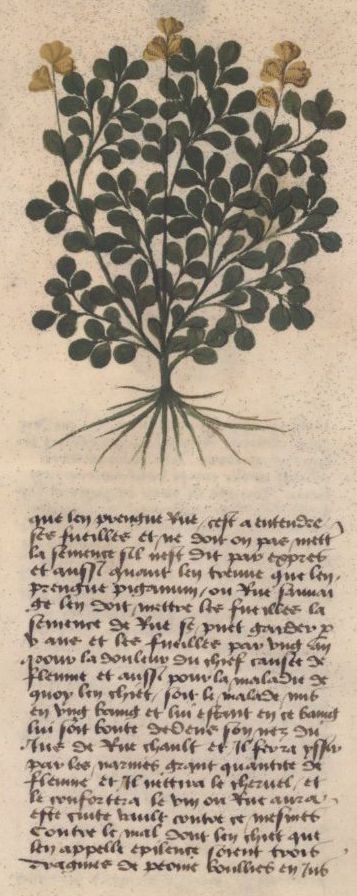 que len prengne Rue / cest a entendre
ses fueilles et ne doit on pas mett
la semence sil nest dit par expres
et aussi quant len treuve que len
prengne piganum / ou Rue sauvai
ge len doit mettre les fueilles la
semence de Rue se puet garder p
v ans et les fueilles par ung an
pour la douleur du chief causee de
fleume et aussi pour la maladie de
quoy len chiet / soit le malade mis
en ung baing et lui estant en ce baing
lui soit boute dedens son nez du
Jus de Rue chault et Il fera yssir
par les narines grant quantite de
fleume et Il nettira le cheruel / et
le confortera le vin ou Rue aura
este cuite vault contre ce mesmes
Contre le mal dont len chiet que
len appelle epilence soient trois
dragmes de peoine boullies en Jus